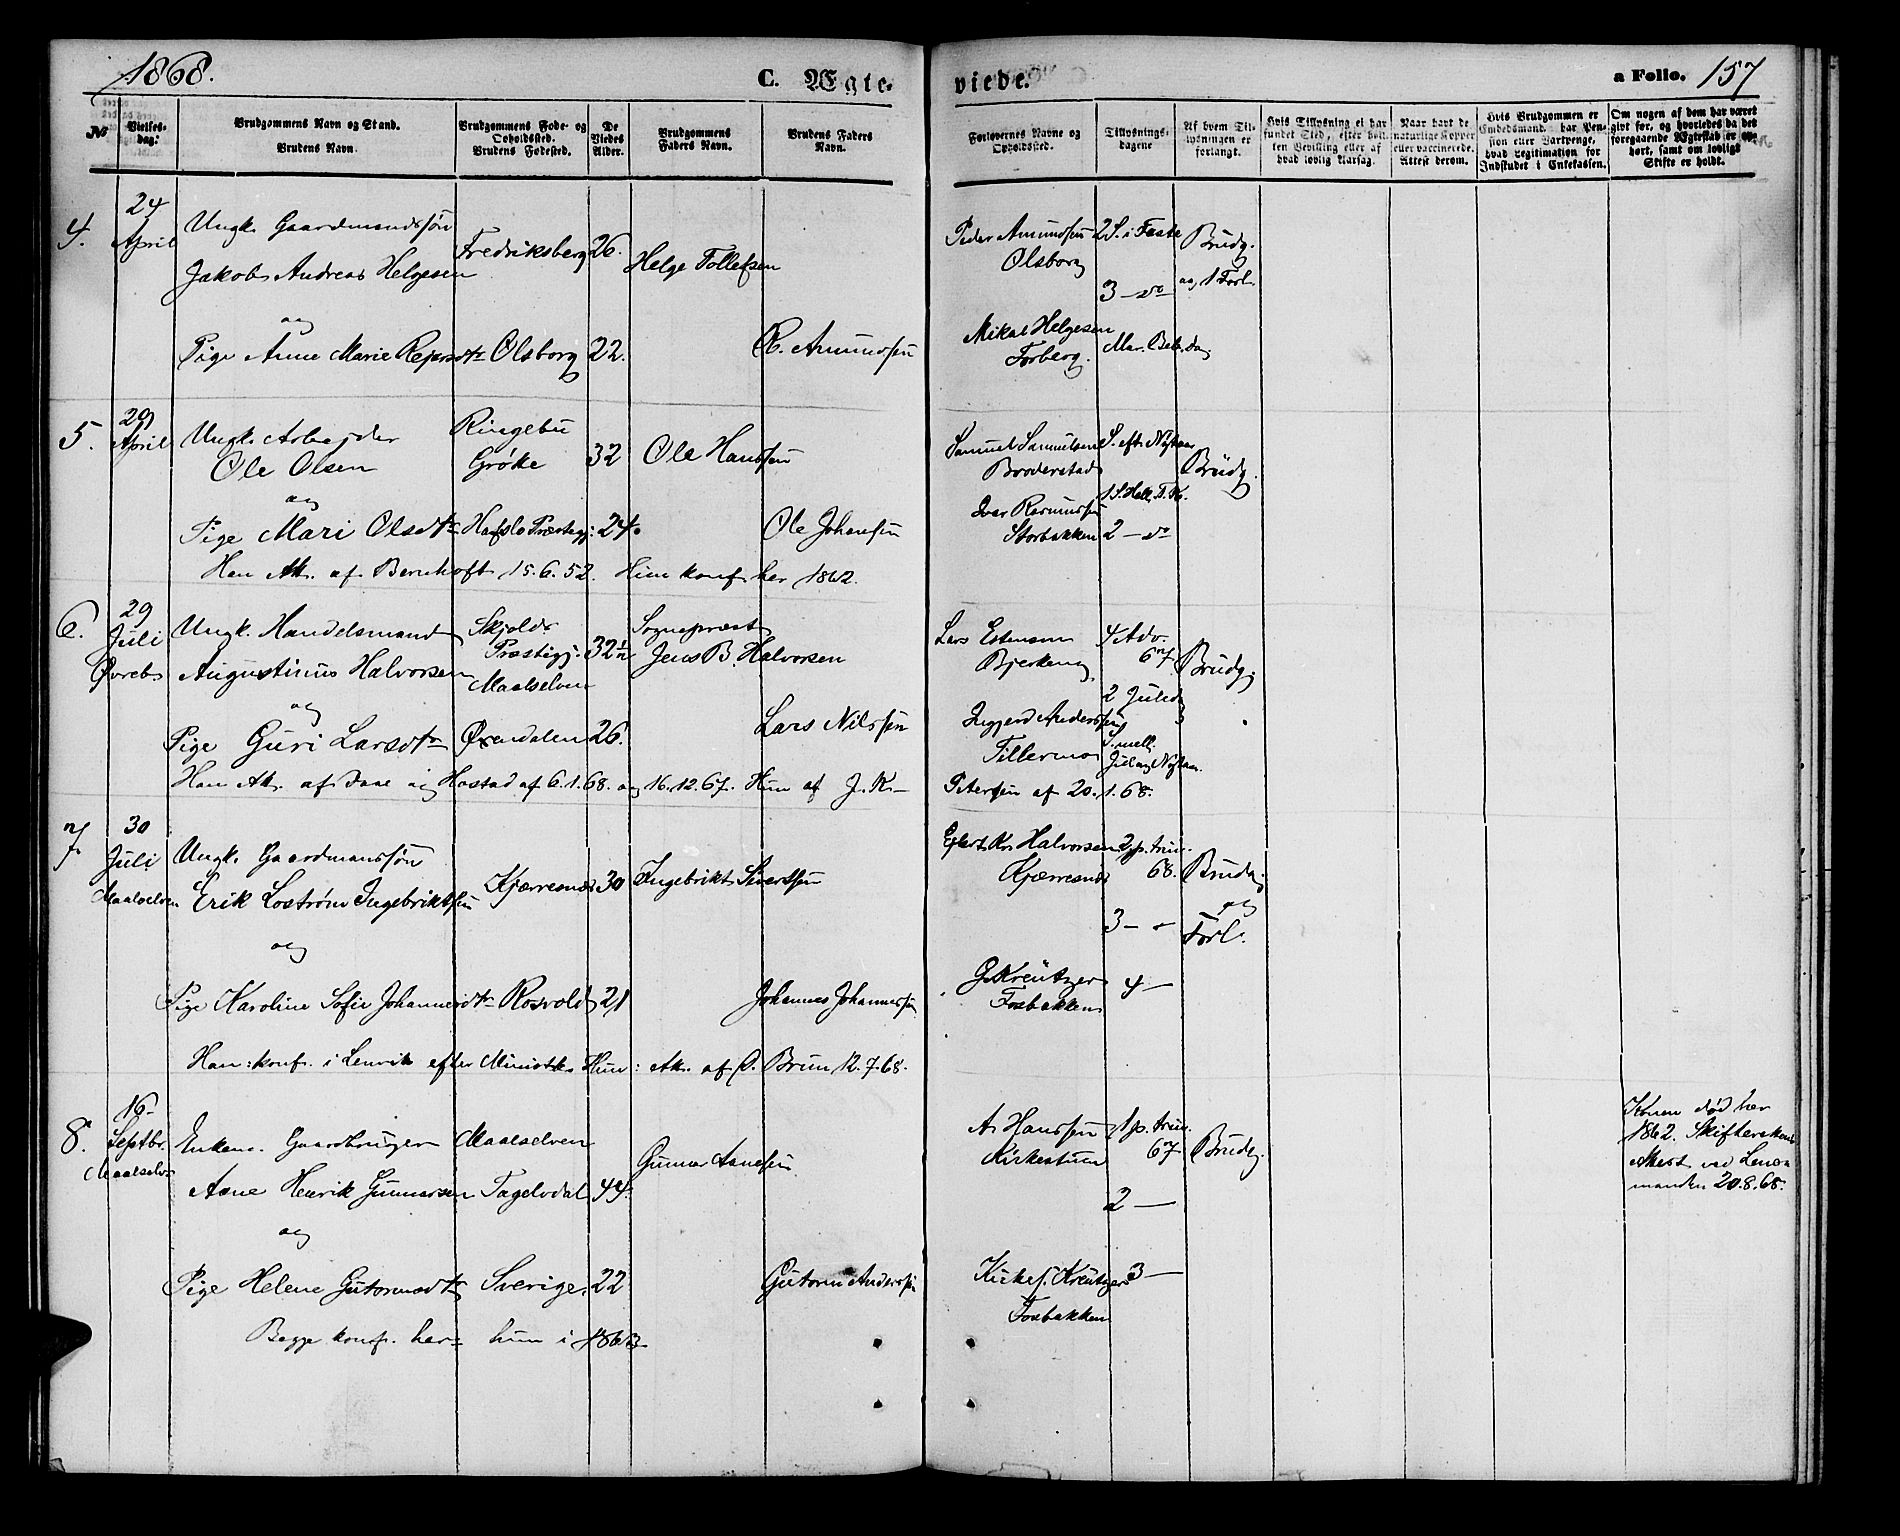 1868.
C. Ægte-
viede.
a Folio. 157
No
Vielses-
dag.
Brudgommens Navn og Stand.
Brudens Navn.
Brudgommens Føde- og
Opholdssted.
Brudens Fødested.
De
Viedes
Alder.
Brudgommens
Faders Navn.
Brudens Faders
Navn.
Forlovernes Navne og
Opholdssted.
Tillysnings-
dagene
Af hvem Til-
lysningen er
forlangt.
Hvis Tillysning ei har
fundet Sted, efter hvil-
ken Bevilling eller af
hvad lovlig Aarsag.
Naar havt de
naturlige Kopper
eller vaccinerede.
Attest derom.
Hvis Brudgommen er
Embedsmand har Pen-
sion eller Vartpenge,
hvad Legitimation for
Indskudet i Enkekassen.
Om nogen af dem har været
gift før, og hvorledes da det
foregaaende Ægteskab er op-
hørt, samt om lovligt
Skifte er holdt.
4.
24
April
Ungk. Gaardmandssøn
Jakob Andreas Helgesen
og
Pige Anne Marie Rejersdtr
Fredriksberg
Olsborg
26.
22.
Helge Tollefsen
R. Amundsen
Peder Amundsen
Olsborg
Mikal Helgesen
Forberg.
2 S. i Faste
3 — do
Mar. Beb. dag
Brudg.
og 1 Forl.
5.
29
April
Ungk. Arbejder
Ole Olsen
og
Pige Mari Olsdtr
Ringebu
Grøke
Hafslo Præstegj:
32
24.
Ole Hanssen
Ole Johansen
Samuel Samuelsen
Broderstad
Iver Rasmussen
Storbakken
S. eft. Nytaar
1 S. Hell. 3. K.
2 — do
Brudg.
Han Att. af Bernhoft 15.6.52. Hun konf. her 1862.
6.
29
Juli
Øvreb.
Ungk. Handelsmand
Augustinus Halvorsen
og
Pige Guri Larsdtr
Skjolds
Præstegj.
Maalselven
Øxendalen
32½
26.
Sognepræst
Jens B. Halvorsen
Lars Nilssen
Lars Estensen
Bjerkeng
Ingjerd Anderssen
Tillermo
4 Adv.
67
2 Juledg
S. mell.
Jul og Nytaar.
Brudg.
Han Att. af Daae og Hastad af 6.1.68. og 16.12.67. Hun af J. K—
Petersen af 20.1.68.
7.
30
Juli
Maalselven
Ungk. Gaardmanssøn
Erik Lostrøm Ingebriktsen
og
Pige Karoline Sofie Johannesdtr
Kjærresnes
Rosvold
30
21
Ingebrikt Sivertsen
Johannes Johannessen
Eflert Kr. Halvorsen
Kjærresnes
G. Kreützer
Fosbakken
2 p. trin.
68.
3 —
4 —
Brudg.
og
Forl.
Han: konf. i Lenvik efter Ministb. Hun: Att. af C. Brun 12.7.68.
8.
16
Septbr.
Maalselv
Enkem. Gaardbruger
Arne Henrik Gunnarsen
og
Pige Helene Gutormsdtr
Maalselven
Fagelvdal
Sverige
44.
22
Gunnar Arnesen
Gutorm Anderssen
A. Hanssen
Kirkestuen
Kirkes. Kreützer
Fosbakken
1 p. trin.
67
2 —
3 —
Brudg.
Konen død her
1862. Skifteretens
Attest ved Lens-
manden 20.8.68.
Begge konf. her hun i 1863